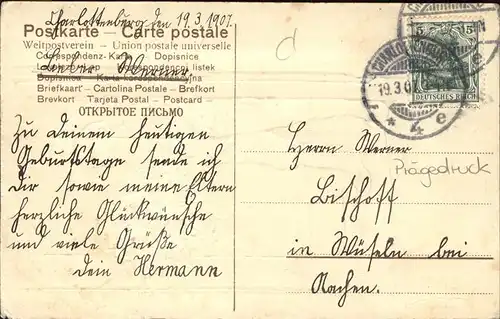 Charlottenburg den 19.3.1907.
Postkarte — Carte postale
Weltpostverein - Union postale universelle
Correspondenz-Karte Dopisnice
Lieber Werner
Dopisnica
Briefkaart - Cartolina Postale - Brefkort
Brevkort Tarjeta Postal - Postcard
ОТКРЫТОЕ ПИСЬМО
Zu Deinem heutigen
Geburtstage sende ich
Dir sowie meine Eltern
herzliche Glückwünsche
und viele Grüße
Dein Hermann
d
5 5
DEUTSCHES REICH
19.3.0
* 4 e
Herrn Werner
Prägedruck
Bischoff
in Würseln bei
Aachen.